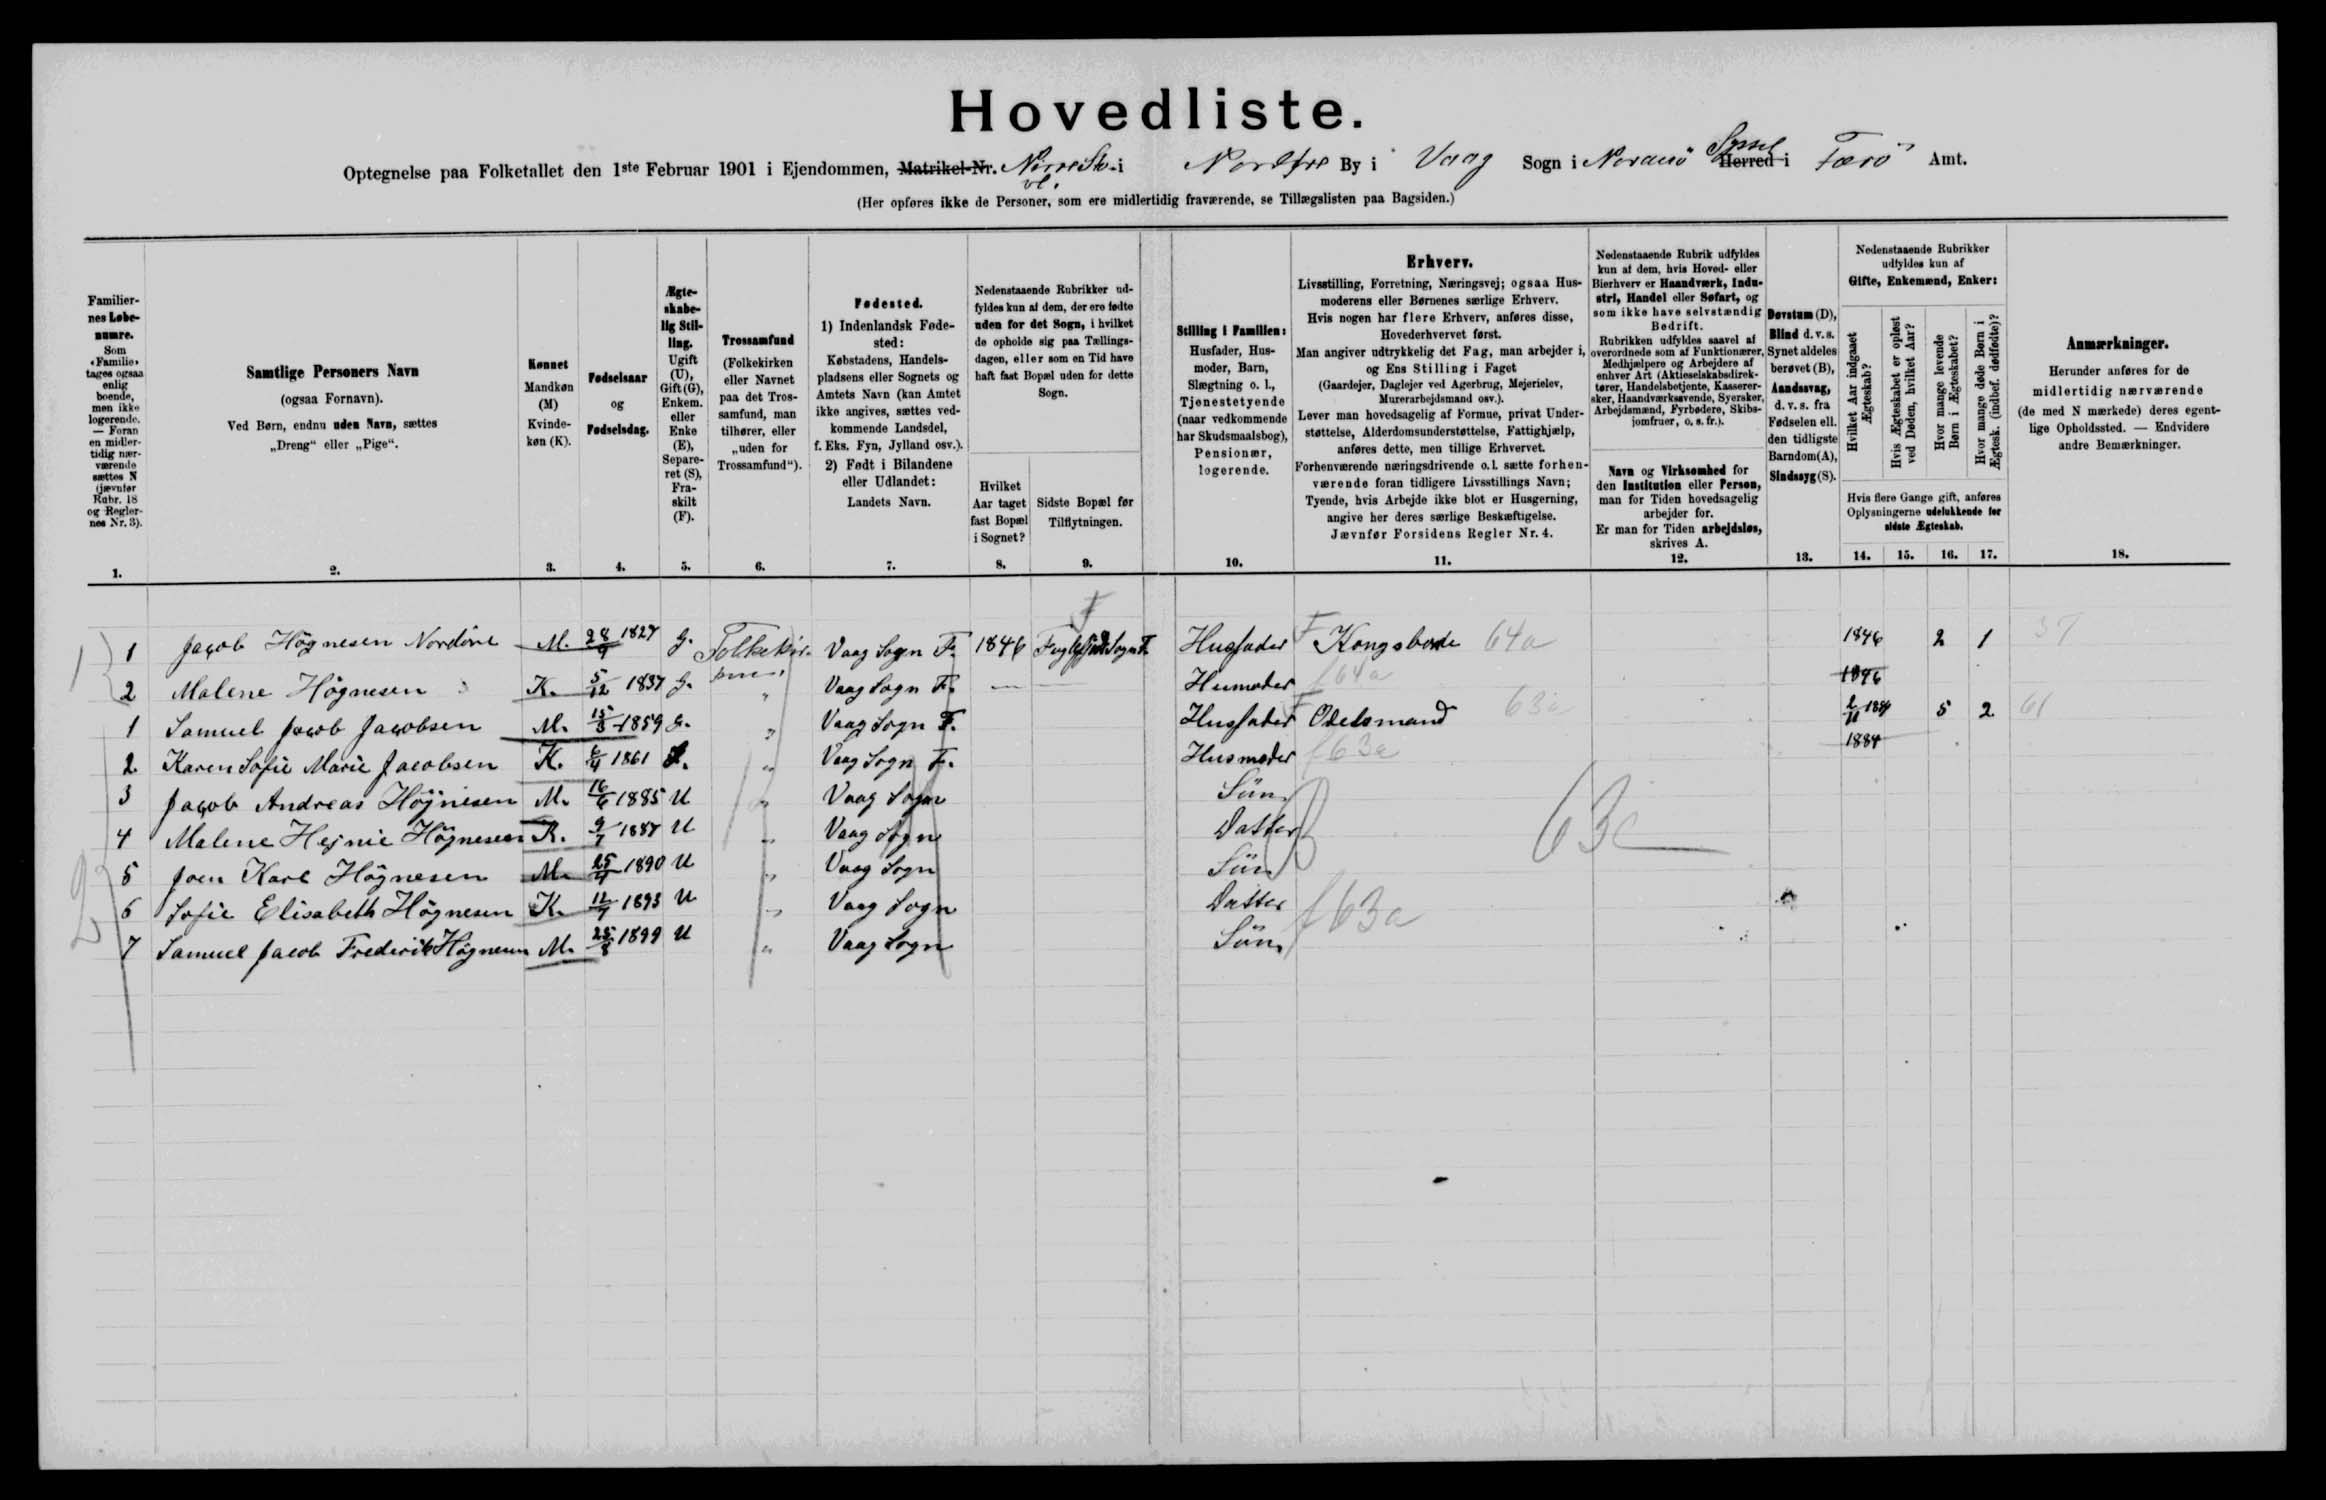 Hovedliste.
Optegnelse paa Folketallet den 1ste Februar 1901 i Ejendommen, Matrikel-Nr. i Nordöre By i Vaag Sogn i Norderö Herred Syssel i Færö Amt.
(Her opføres ikke de Personer, som ere midlertidig fraværende, se Tillægslisten paa Bagsiden.)
Familiernes Løbenumre.
Som «Familie» tages ogsaa enlig boende, men ikke logerende. — Foran en midlertidig nærværende sættes N (jævnfør Rubr. 18 og Reglernes Nr. 3).
1.
Samtlige Personers Navn
(ogsaa Fornavn).
Ved Børn, endnu uden Navn, sættes
„Dreng“ eller „Pige“.
2.
Kønnet
Mandkøn (M)
Kvindekøn (K).
3.
Fødselsaar
og
Fødselsdag.
4.
Ægteskabelig Stilling.
Ugift (U), Gift (G), Enkem. eller Enke (E), Separeret (S), Fraskilt (F).
5.
Trossamfund
(Folkekirken eller Navnet paa det Trossamfund, man tilhører, eller „uden for Trossamfund“).
6.
Fødested.
1) Indenlandsk Fødested:
Købstadens, Handelspladsens eller Sognets og Amtets Navn (kan Amtet ikke angives, sættes vedkommende Landsdel, f. Eks. Fyn, Jylland osv.).
2) Født i Bilandene eller Udlandet:
Landets Navn.
7.
Nedenstaaende Rubrikker udfyldes kun af dem, der ere fødte uden for det Sogn, i hvilket de opholde sig paa Tællingsdagen, eller som en Tid have haft fast Bopæl uden for dette Sogn.
Hvilket Aar taget fast Bopæl i Sognet?
8.
Sidste Bopæl før Tilflytningen.
9.
Stilling i Familien:
Husfader, Husmoder, Barn, Slægtning o. l., Tjenestetyende (naar vedkommende har Skudsmaalsbog), Pensionær, logerende.
10.
Erhverv.
Livsstilling, Forretning, Næringsvej; ogsaa Husmoderens eller Børnenes særlige Erhverv.
Hvis nogen har flere Erhverv, anføres disse, Hovederhvervet først.
Man angiver udtrykkelig det Fag, man arbejder i, og Ens Stilling i Faget
(Gaardejer, Daglejer ved Agerbrug, Mejerielev, Murerarbejdsmand osv.).
Lever man hovedsagelig af Formue, privat Understøttelse, Alderdomsunderstøttelse, Fattighjælp, anføres dette, men tillige Erhvervet.
Forhenværende næringsdrivende o. l. sætte forhenværende foran tidligere Livsstillings Navn;
Tyende, hvis Arbejde ikke blot er Husgerning, angive her deres særlige Beskæftigelse.
Jævnfør Forsidens Regler Nr. 4.
11.
Nedenstaaende Rubrik udfyldes kun af dem, hvis Hoved- eller Bierhverv er Haandværk, Industri, Handel eller Søfart, og som ikke have selvstændig Bedrift.
Rubrikken udfyldes saavel af overordnede som af Funktionærer, Medhjælpere og Arbejdere af enhver Art (Aktieselskabsdirektører, Handelsbetjente, Kasserersker, Haandværkssvende, Syersker, Arbejdsmænd, Fyrbødere, Skibsjomfruer, o. s. fr.).
Navn og Virksomhed for den Institution eller Person, man for Tiden hovedsagelig arbejder for.
Er man for Tiden arbejdsløs, skrives A.
12.
Døvstum (D), Blind d. v. s. Synet aldeles berøvet (B), Aandssvag, d. v. s. fra Fødselen ell. den tidligste Barndom (A), Sindssyg (S).
13.
Nedenstaaende Rubrikker udfyldes kun af
Gifte, Enkemænd, Enker:
Hvilket Aar indgaaet Ægteskab?
Hvis Ægteskabet er opløst ved Døden, hvilket Aar?
Hvor mange levende Børn i Ægteskabet?
Hvor mange døde Børn i Ægtesk. (indbef. dødfødte)?
Hvis flere Gange gift, anføres Oplysningerne udelukkende for sidste Ægteskab.
14. 15. 16. 17.
Anmærkninger.
Herunder anføres for de midlertidig nærværende (de med N mærkede) deres egentlige Opholdssted. — Endvidere andre Bemærkninger.
18.
1 Jacob Högnesen Nordöre M. 1827 G. Folkekirken Vaag Sogn F. 1846 Husfader F Kongsbonde 64a 1846 2 1 37
2 Malene Högnesen K. 5/12 1837 G. „ Vaag Sogn F. — — Husmoder f64a 1846
1 Samuel Jacob Jacobsen M. 15/3 1859 G. „ Vaag Sogn F. Husfader F Odelsmand 63a 2/11 1884 5 2 61
2 Karen Sofie Marie Jacobsen K. 1861 G. „ Vaag Sogn F. Husmoder f63a 1884
3 Jacob Andreas Högnesen M. 16/6 1885 U „ Vaag Sogn Sön
4 Malene Hejnie Högnesen K. 9/7 1887 U „ Vaag Sogn Datter 63c
5 Joen Karl Högnesen M. 1890 U „ Vaag Sogn Sön
6 Sofie Elisabeth Högnesen K. 1893 U „ Vaag Sogn Datter f63a
7 Samuel Jacob Frederik Högnesen M. 25/8 1899 U „ Vaag Sogn Sön